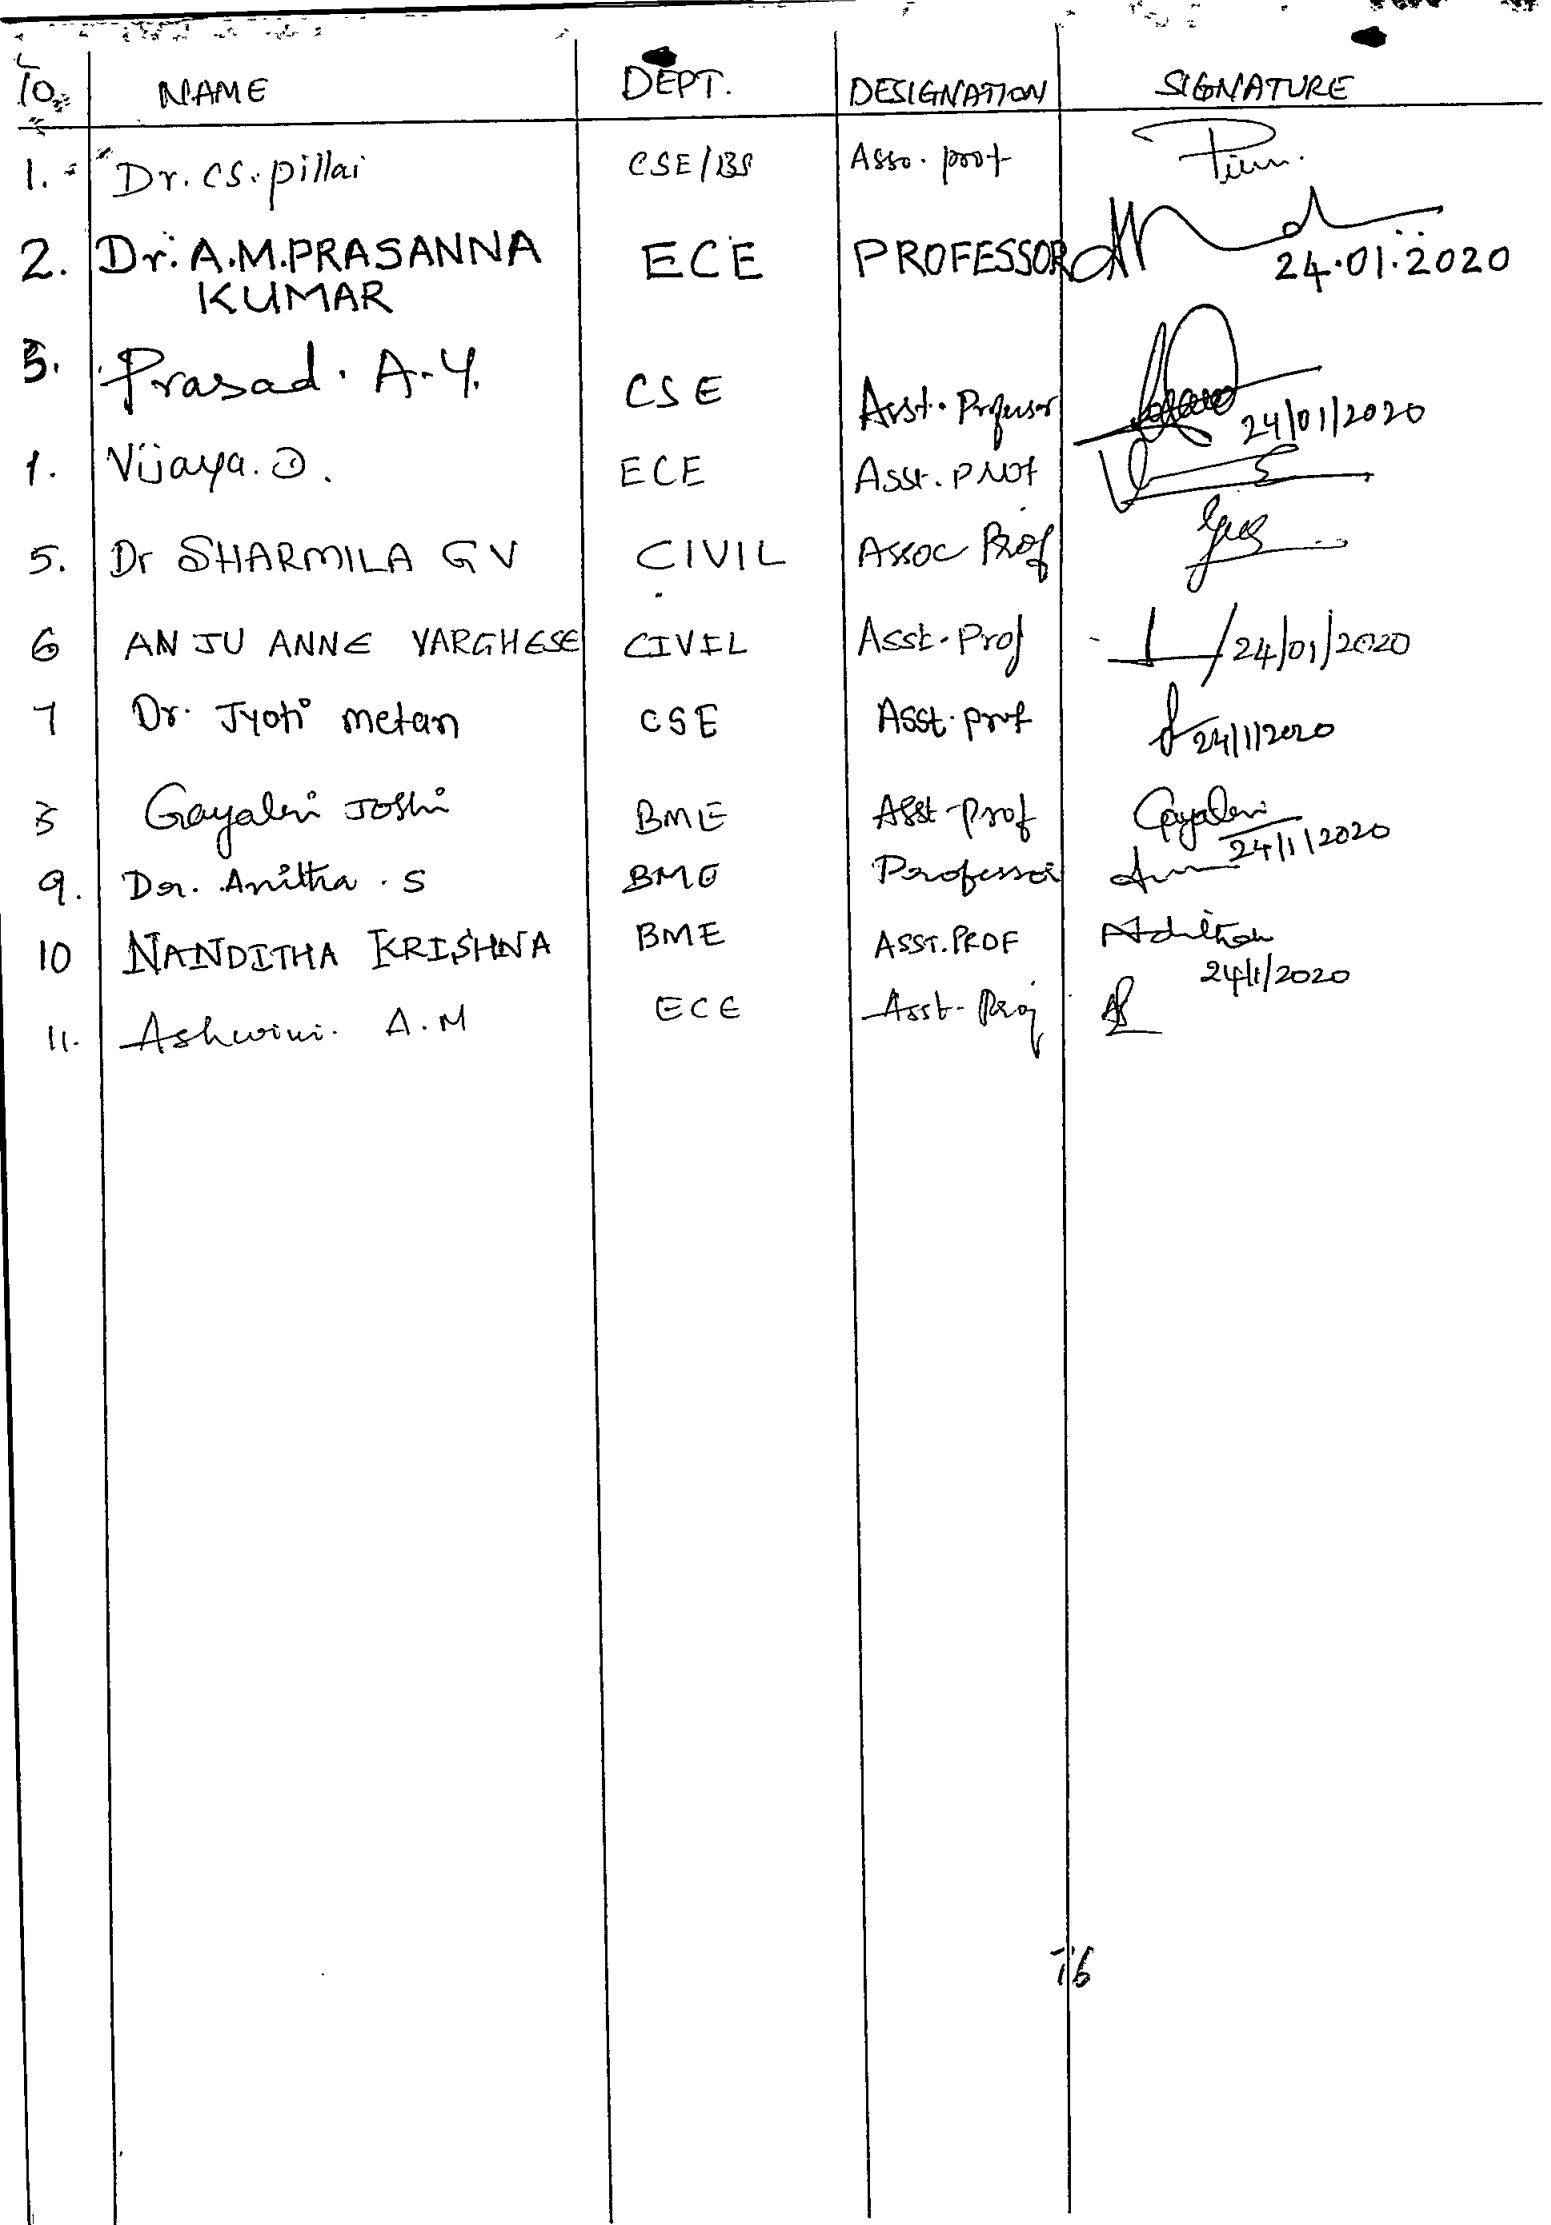 NAME DEPT. DESIGNATION SIGNATURE
1. Dr. CS. pillai CSE/BS Asso. prof
2. Dr. A.M.PRASANNA KUMAR ECE PROFESSOR 24.01.2020
3. Prasad. A.Y. CSE Asst. Professor 24/01/2020
Vijaya. D. ECE Asst. Prof
5. Dr SHARMILA G V CIVIL Assoc Prof
6 ANJU ANNE VARGHESE CIVIL Asst. Prof 24/01/2020
7 Dr. Jyoti metan CSE Asst. prof 24/1/2020
Gayatri Joshi BME Asst prof Gayatri 24/1/2020
9. Dr. Anitha . S BME Professor
10 NANDITHA KRISHNA BME ASST. PROF 24/1/2020
11. Ashwini. A.M ECE Asst. Prof
76